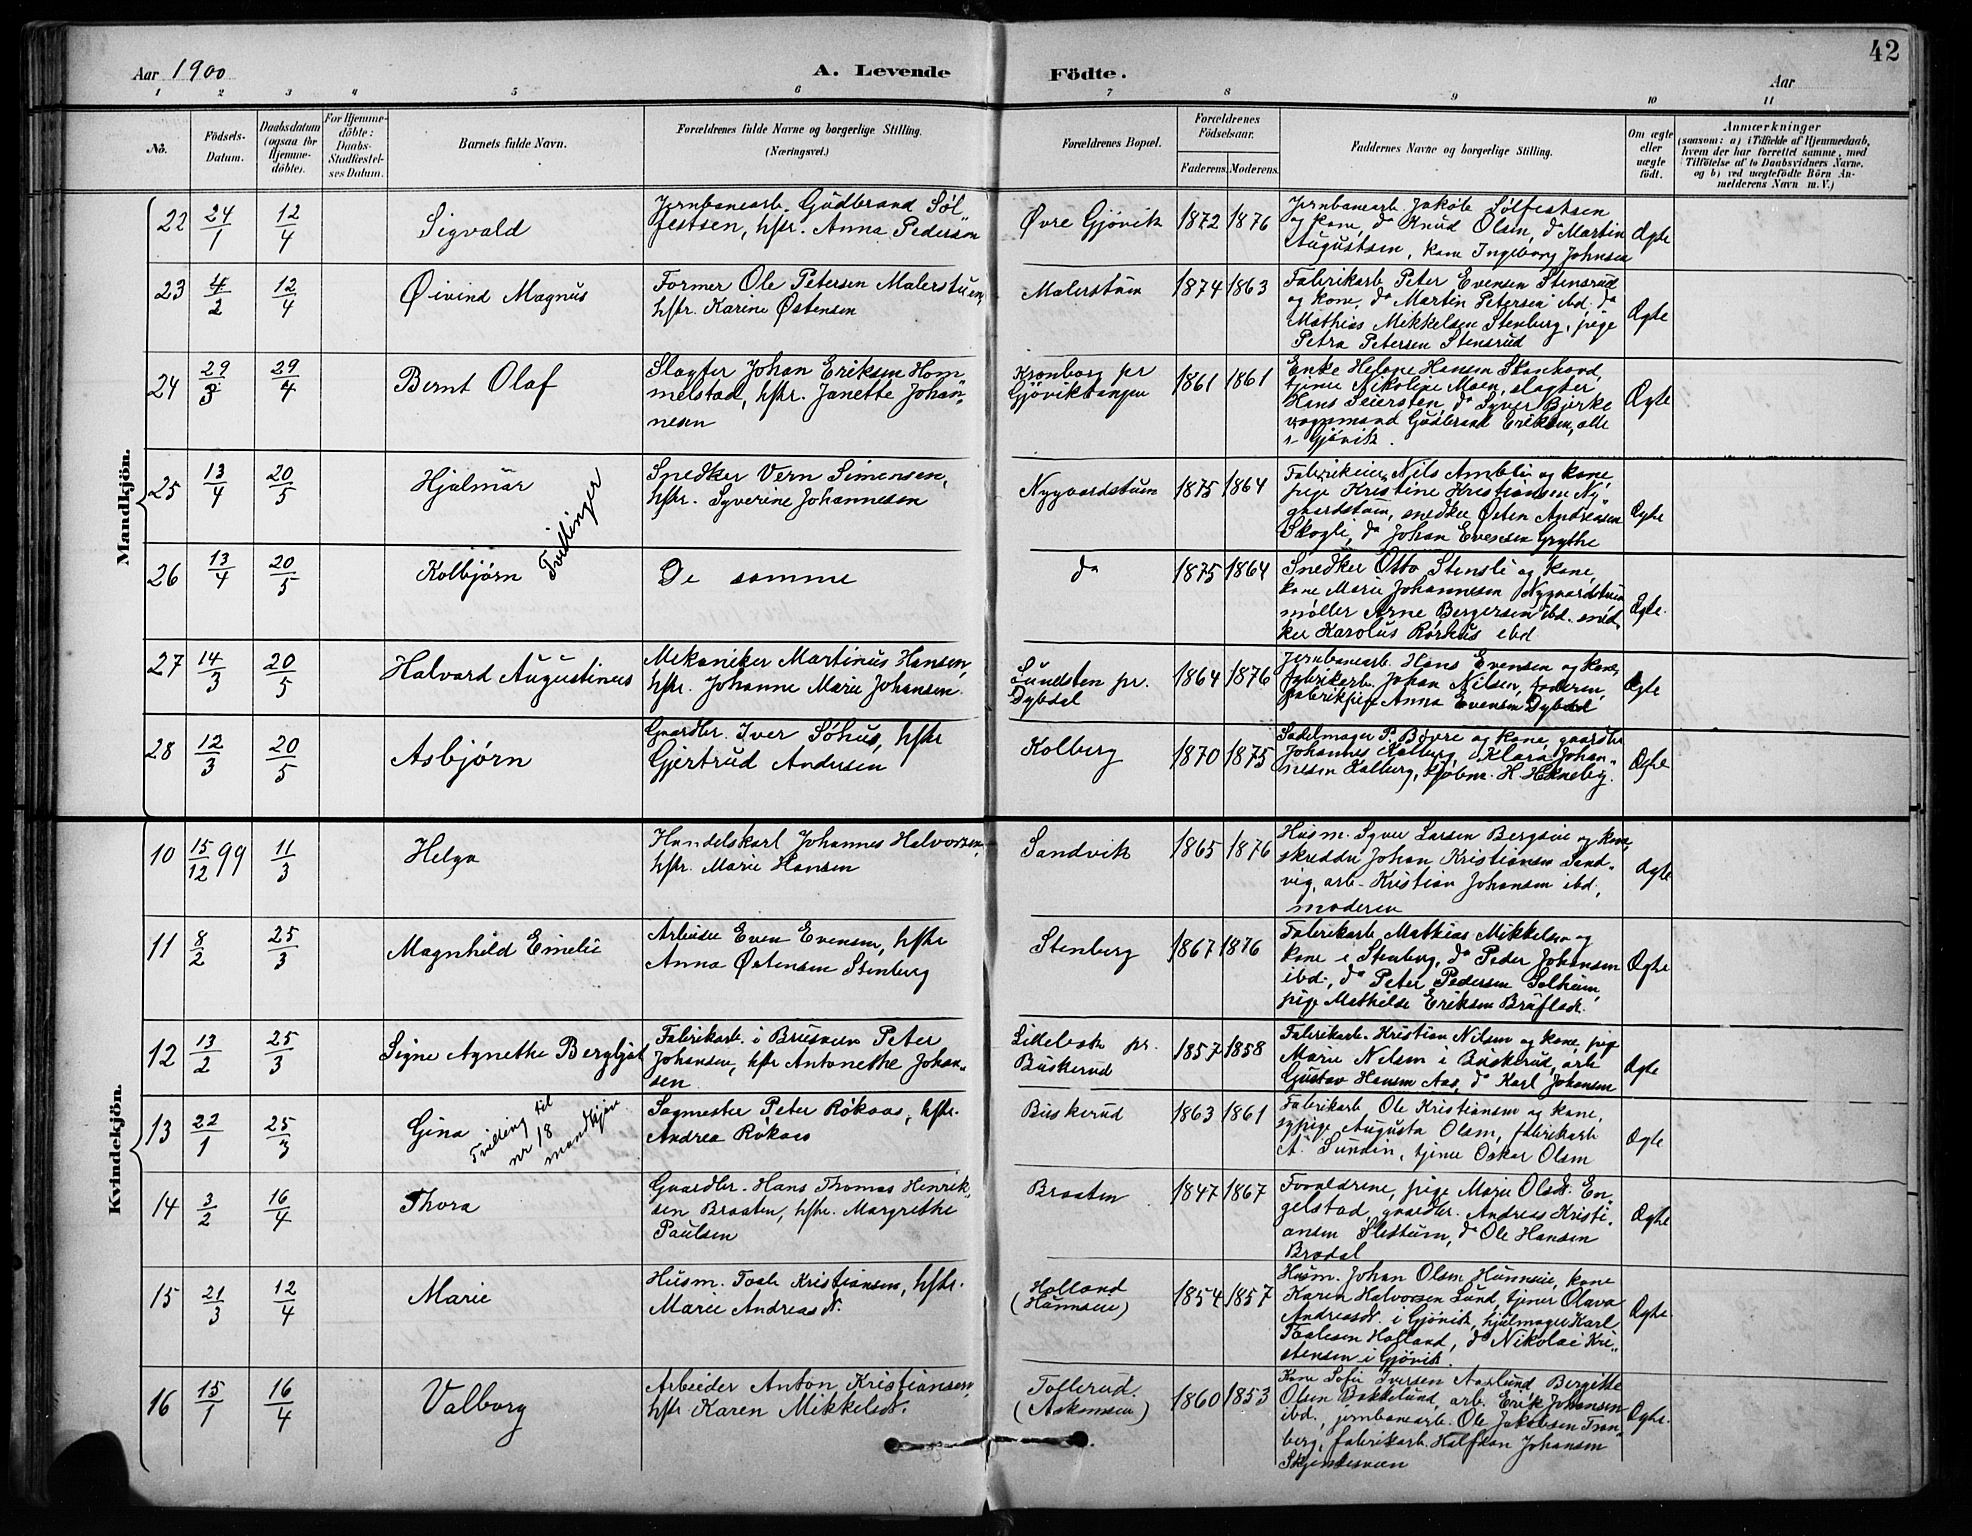 42
Aar 1900
A. Levende
Födte.
Aar
1 2 3 4 5 6 7 8 9 10 11
No.
Födsels-Datum.
Daabsdatum (ogsaa for Hjemme-döbte).
For Hjemme-döbte: Daabs-Stadfæstel-ses Datum.
Barnets fulde Navn.
Forældrenes fulde Navne og borgerlige Stilling.
(Næringsvei.)
Forældrenes Bopæl.
Forældrenes Födselsaar.
Faderens. Moderens.
Faddernes Navne og borgerlige Stilling.
Om ægte eller uægte födt.
Anmærkninger
(saasom: a) i Tilfælde af Hjemmedaab,
hvem der har forrettet samme, med
Tilföielse af to Daabsvidners Navne.
og b) ved uægtefödte Börn An-
melderens Navn m. V.)
Mandkjön.
22 24/1 12/4 Sigvald
Jernbanearb. Gudbrand Søl-
festsen, hstr. Anna Pedersen
Øvre Gjøvik 1872 1876
Jernbanearb. Jakob Sølfestsen
og kone, do Knud Olsen, do Martin
Augustsen, kone Ingeborg Johnsen
Ægte
23 4/2 12/4 Øivind Magnus
Former Ole Petersen Malerstuen,
hstr. Karine Østensen
Malerstuen 1874 1863
Fabrikarb Peter Evensen Stensrud
og kone, do Martin Petersen ibd. do
Mathias Mikkelsen Stenberg, pige
Petra Petersen Stensrud
Ægte
24 29/3 29/4 Bernt Olaf
Slagter Johan Eriksen Hom
melstad, hstr. Janette Johan-
nesen
Kronborg pr
Gjøviktangen 1861 1861
Enke Helene Hansen Skonhovd,
tjener Nikoline Moen, slagter
Hans Seiersten, do Syver Bjerke
vognmand Gudbrand Eriksen, alle
i Gjøvik.
Ægte
25 13/4 20/5 Hjalmar
Tvillinger
Snedker Vern Simensen,
hstr. Syverine Johannesen
Nygaardstuen 1875 1864
Fabrikeier Nils Ambli og kone,
pige Kristine Kristiansen Ny-
gaardstuen, snedker Østen Andreasen
Skogli, do Johan Evensen Grythe
Ægte
26 13/4 20/5 Kolbjørn
De samme
do 1875 1864
Snedker Otto Stensli og kone,
kone Marie Johannesen Nygaardstuen
møller Arne Bergersen ibd. sned-
ker Karolus Rørhus ibd
Ægte.
27 14/3 20/5 Halvard Augustinus
Mekaniker Martinus Hansen,
hstr. Johanne Marie Johansen.
Lundsten pr.
Dybdal 1864 1876
Jernbanearb. Hans Evensen og kone,
fabrikarb. Johan Nilsen, faderen,
fabrikpige Anna Evensen Dybdal
Ægte
28 12/3 20/5 Asbjørn
Gaardbr. Iver Søhus, hstr
Gjertrud Andersen
Kolberg 1870 1875
Sadelmager P. Bøvre og kone, gaardbr
Johannes Kalberg, Klara Johan-
nesen Kalberg, kjøbm. H. Hekneby.
Ægte
Kvindekjön.
10 15/12 99 11/3 Helga
Handelskarl Johannes Halvorsen,
hstr. Marie Hansen
Sandvik 1865 1876
Husm. Syver Larsen Bergseie og kone,
skredder Johan Kristiansen Sand-
vig, arb. Kristian Johansen ibd,
moderen
Ægte
11 8/2 25/3 Magnhild Emelie
Arbeider Even Evensen, hstr
Anna Østensen Stenberg
Stenberg 1867 1876
Fabrikarb Mathias Mikkelsen og
kone i Stenberg, do Peder Johansen
ibd, do Peter Pedersen Solheim,
pige Mathilde Eriksen Bruflat.
Ægte
12 13/2 25/3 Signe Agnethe Bergljot
Fabrikarb. i Brusveen Peter
Johansen, hstr Antonethe Johan-
sen
Lillebæk pr.
Buskerud 1857 1858
Fabrikarb. Kristian Nilsen og kone, pige
Marie Nilsen i Buskerud, arb
Gustav Hansen Aas, do Karl Johansen
Ægte
13 22/1 25/3 Gina
Tvilling til
nr 18
mandkjøn
Sagmester Peter Røkaas, hstr.
Andrea Røkaas
Buskerud 1863 1861
Fabrikarb Ole Kristiansen og kone,
sypige Augusta Olsen, fabrikarb
A. Sundin, tjener Oskar Olsen
Ægte
14 3/2 16/4 Thora
Gaardbr. Hans Thomas Henrik-
sen Braaten, hstr. Margrethe
Paulsen
Braaten 1847 1867
Forældrene, pige Marie Olsdt. En-
gelstad, gaardbr. Andreas Kristi-
ansen Slettum, do Ole Hansen
Brodal
Ægte
15 21/3 12/4 Marie
Husm. Taale Kristiansen, hstr.
Marie Andreasdt.
Holland
(Hunnseie) 1854 1857
Husm. Johan Olsen Hunnseie, kone
Karen Halvorsen Lund, tjener Olava
Andreasdt. i Gjøvik, hjulmager Karl
Taalesen Holland, do Nikolai Kri-
stensen i Gjøvik.
Ægte.
16 15/1 16/4 Valborg
Arbeider Anton Kristiansen,
hstr. Karen Mikkelsdt.
Tollerud.
1860 1853
Kone Sofie Iversen Aaslund, Bergitte
Olsen Bakkelund, arb. Erik Johansen
ibd., jernbanearb. Ole Jakobsen Tran-
berg, fabrikarb. Halfdan Johansen
Ægte.